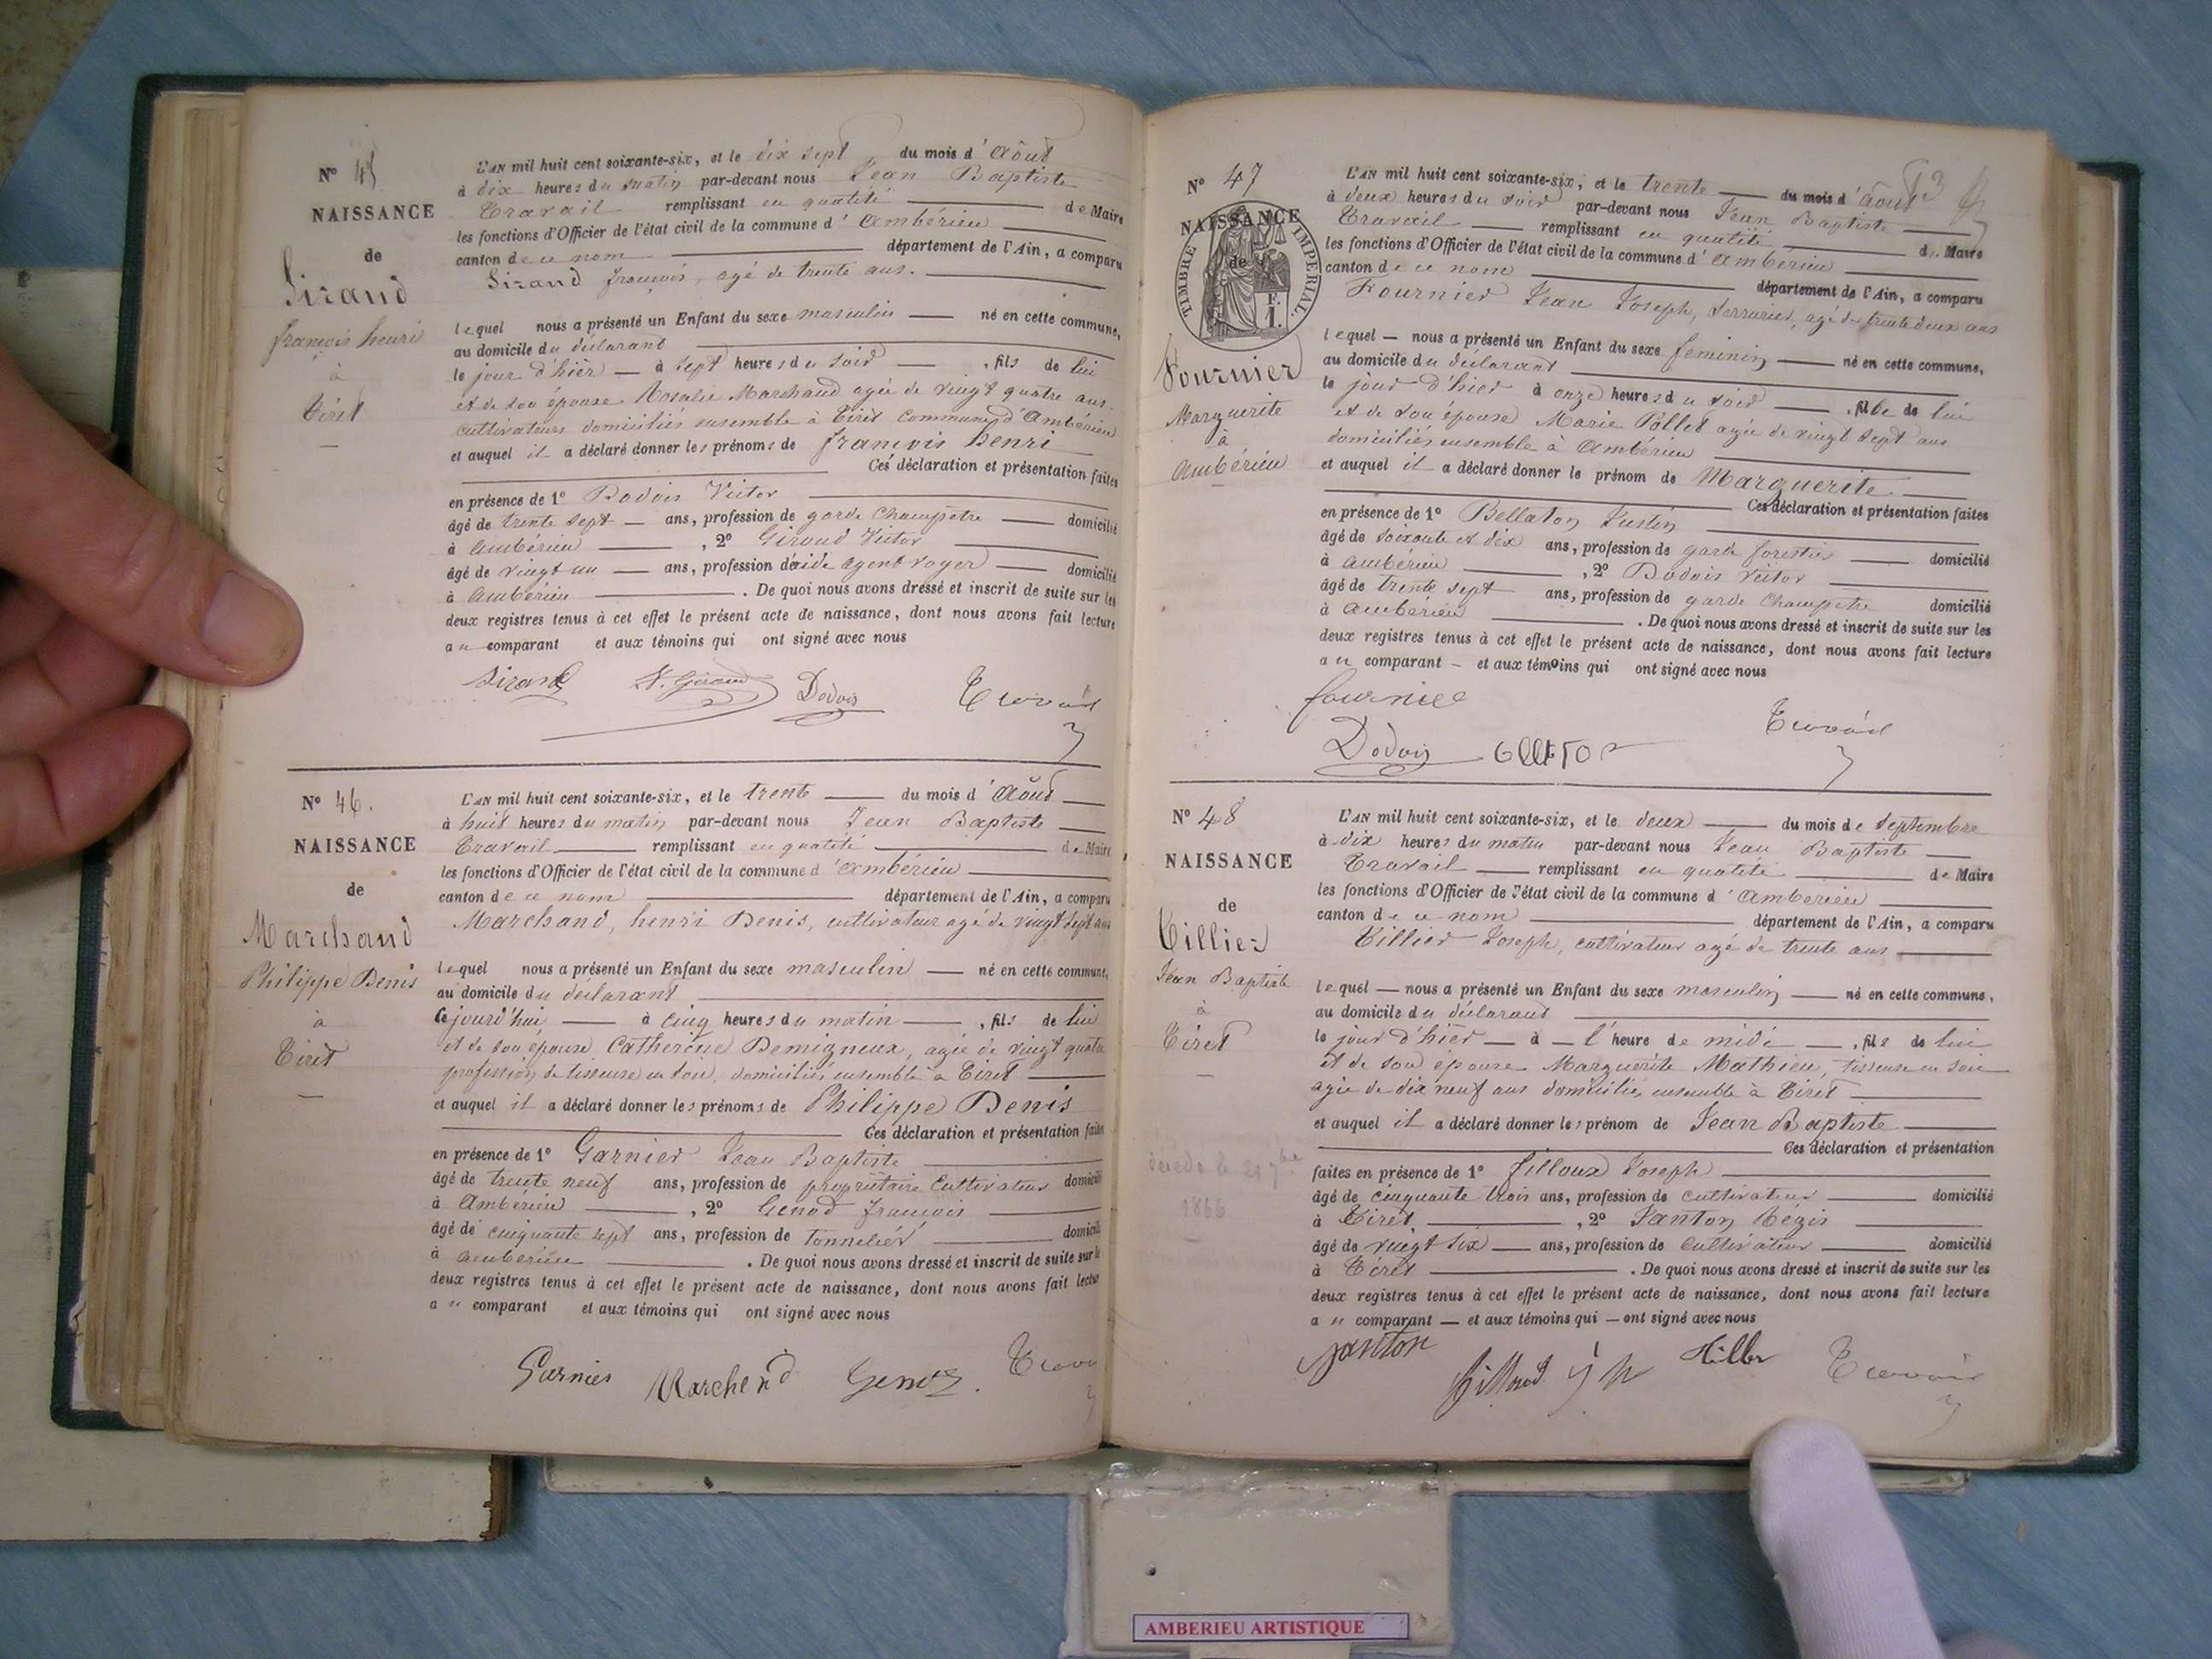 N° 45
NAISSANCE
de
Sirand
françois henri
à
Tiret
L'AN mil huit cent soixante-six, et le dix sept du mois d'Août
à dix heures du matin par-devant nous Jean Baptiste
Travail remplissant en qualité de Maire
les fonctions d'Officier de l'état civil de la commune d'Ambérieu
canton de ce nom département de l'Ain, a comparu
Sirand françois, agé de trente ans.
lequel nous a présenté un Enfant du sexe masculin né en cette commune,
au domicile du déclarant
le jour d'hier à sept heures du soir, fils de lui
et de son épouse Rosalie Marchand agée de vingt quatre ans
cultivateurs domiciliés ensemble à Tiret Commune d'Ambérieu
et auquel il a déclaré donner les prénoms de françois henri
Ces déclaration et présentation faites
en présence de 1° Dodois Victor
âgé de trente sept ans, profession de garde champêtre domicilié
à Ambérieu, 2° Giroud Victor
âgé de vingt un ans, profession d'aide agent voyer domicilié
à Ambérieu. De quoi nous avons dressé et inscrit de suite sur les
deux registres tenus à cet effet le présent acte de naissance, dont nous avons fait lecture
au comparant et aux témoins qui ont signé avec nous
Sirand V. Giroud Dodois Travail
N° 46.
NAISSANCE
de
Marchand
Philippe Denis
à
Tiret
L'AN mil huit cent soixante-six, et le trente du mois d'Août
à huit heures du matin par-devant nous Jean Baptiste
Travail remplissant en qualité de Maire
les fonctions d'Officier de l'état civil de la commune d'Ambérieu
canton de ce nom département de l'Ain, a comparu
Marchand, henri Denis, cultivateur agé de vingt sept ans
lequel nous a présenté un Enfant du sexe masculin né en cette commune,
au domicile du déclarant
cejourd'hui à cinq heures du matin, fils de lui
et de son épouse Catherine Demigneux, agée de vingt quatre
profession de tisseuse en soie, domiciliés ensemble à Tiret
et auquel il a déclaré donner les prénoms de Philippe Denis
Ces déclaration et présentation faites
en présence de 1° Garnier Jean Baptiste
âgé de trente neuf ans, profession de propriétaire Cultivateur domicilié
à Ambérieu, 2° Genod françois
âgé de cinquante sept ans, profession de tonnelier domicilié
à Ambérieu. De quoi nous avons dressé et inscrit de suite sur les
deux registres tenus à cet effet le présent acte de naissance, dont nous avons fait lecture
au comparant et aux témoins qui ont signé avec nous
Garnier Marchend Genod Travail
N° 47
NAISSANCE
de
TIMBRE IMPERIAL
Fournier
Marguerite
à
Ambérieu
L'AN mil huit cent soixante-six, et le trente du mois d'Août
à deux heures du soir par-devant nous Jean Baptiste
Travail remplissant en qualité de Maire
les fonctions d'Officier de l'état civil de la commune d'Ambérieu
canton de ce nom département de l'Ain, a comparu
Fournier Jean Joseph, Serrurier, agé de trente deux ans
lequel nous a présenté un Enfant du sexe féminin né en cette commune,
au domicile du déclarant
le jour d'hier à onze heures du soir, fille de lui
et de son épouse Marie Pollet agée de vingt sept ans
domiciliés ensemble à Ambérieu
et auquel il a déclaré donner le prénom de Marguerite
Ces déclaration et présentation faites
en présence de 1° Bellaton Justin
âgé de soixante et dix ans, profession de garde forestier domicilié
à Ambérieu, 2° Dodois Victor
âgé de trente sept ans, profession de garde Champêtre domicilié
à Ambérieu. De quoi nous avons dressé et inscrit de suite sur les
deux registres tenus à cet effet le présent acte de naissance, dont nous avons fait lecture
au comparant et aux témoins qui ont signé avec nous
fournier
Dodois Travail
N° 48
NAISSANCE
de
Tillier
Jean Baptiste
à
Tiret
décédé le 21 7bre
1866
L'AN mil huit cent soixante-six, et le deux du mois de Septembre
à dix heures du matin par-devant nous Jean Baptiste
Travail remplissant en qualité de Maire
les fonctions d'Officier de l'état civil de la commune d'Ambérieu
canton de ce nom département de l'Ain, a comparu
Tillier Joseph, cultivateur agé de trente ans
lequel nous a présenté un Enfant du sexe masculin né en cette commune,
au domicile du déclarant
le jour d'hier à l'heure de midi, fils de lui
et de son épouse Marguerite Mathieu, tisseuse en soie
agée de dix neuf ans domiciliés ensemble à Tiret
et auquel il a déclaré donner les prénom de Jean Baptiste
Ces déclaration et présentation
faites en présence de 1° filloux Joseph
âgé de cinquante trois ans, profession de cultivateur domicilié
à Tiret, 2° Janton Régis
âgé de vingt six ans, profession de cultivateur domicilié
à Tiret. De quoi nous avons dressé et inscrit de suite sur les
deux registres tenus à cet effet le présent acte de naissance, dont nous avons fait lecture
au comparant et aux témoins qui ont signé avec nous
janton Travail
AMBERIEU ARTISTIQUE